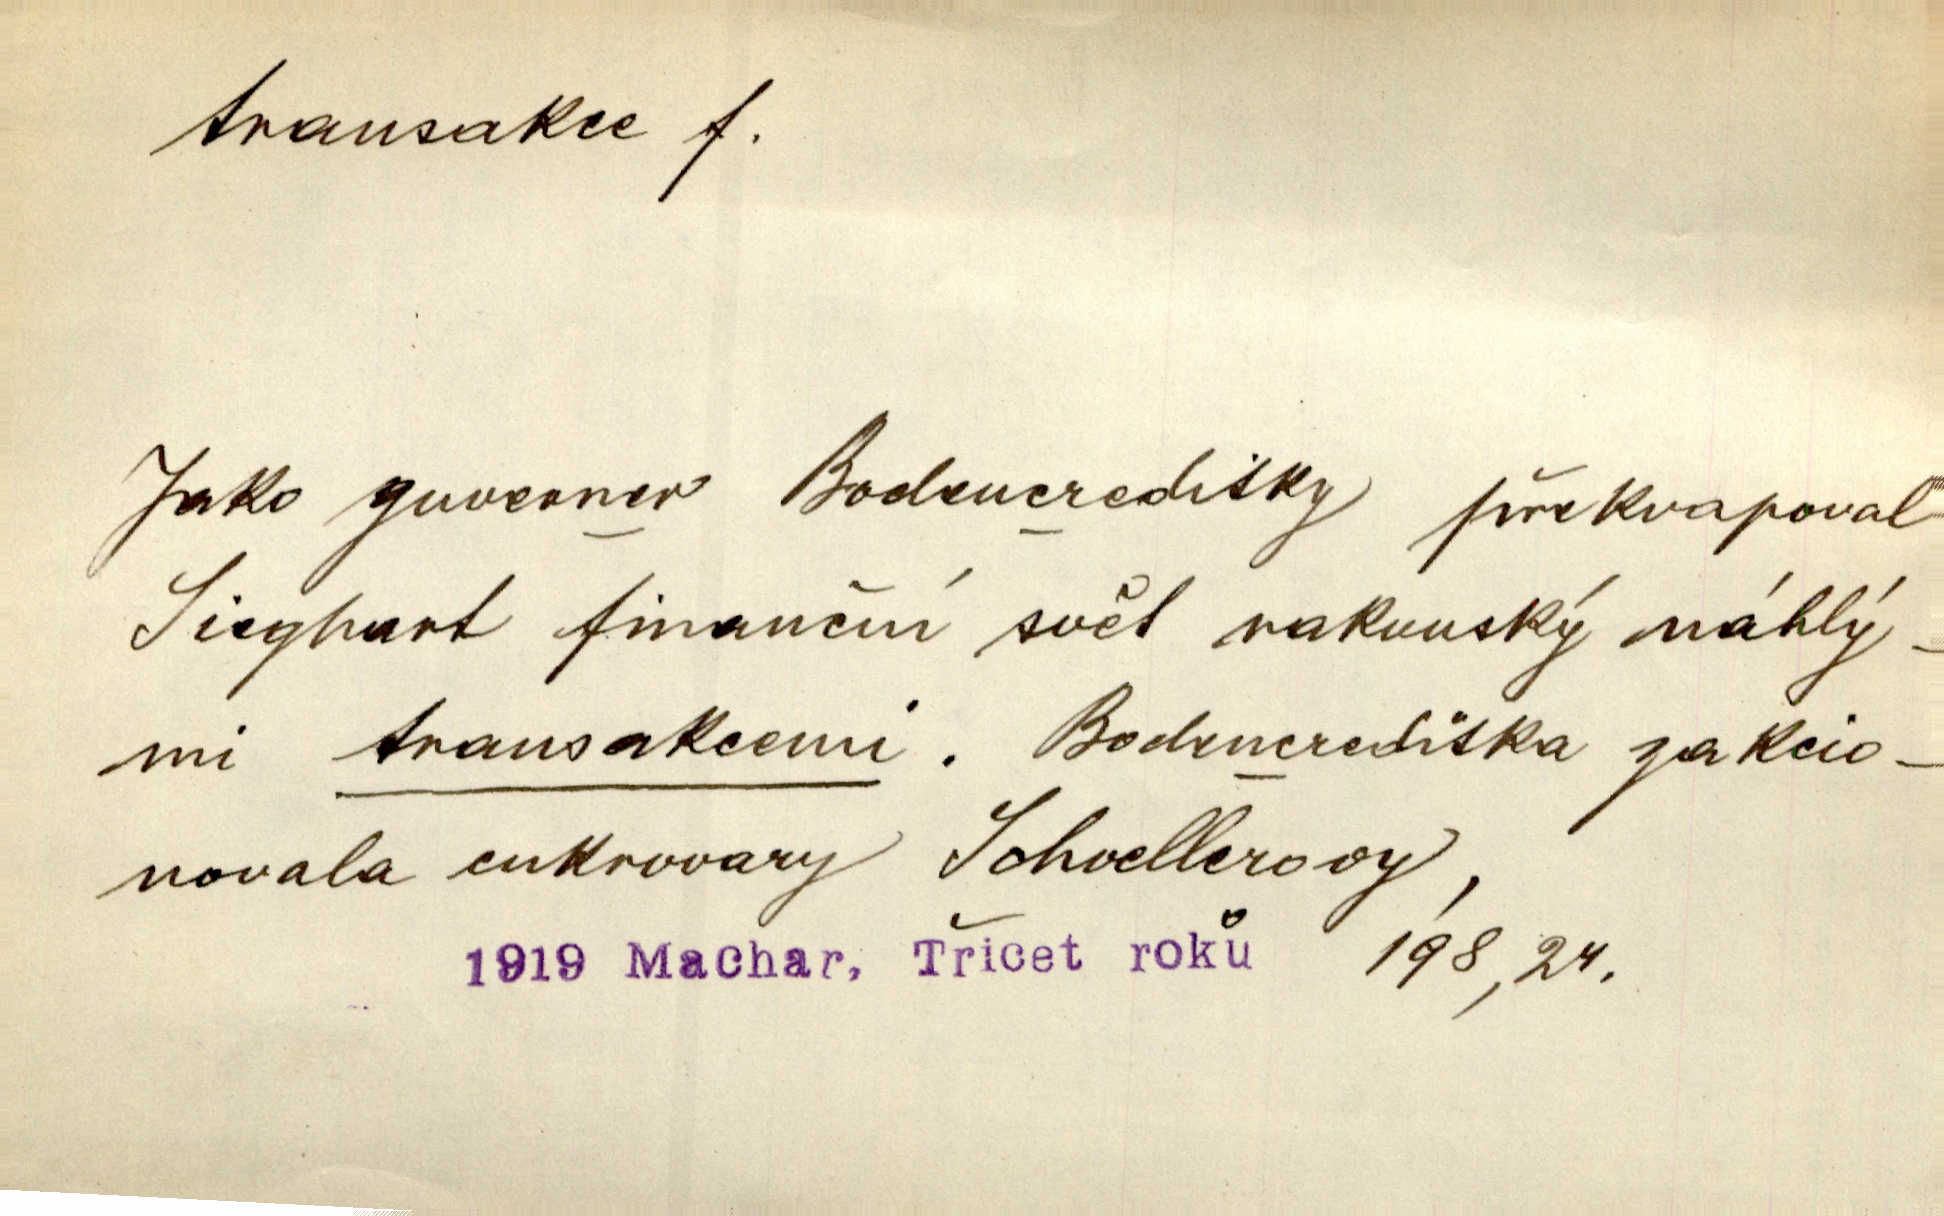 transakce f.
Jako guverner Bodencreditky překvapoval
Sieghart finanční svět rakouský náhlý-
mi transakcemi. Bodencreditka zakcio-
novala cukrovary Schoellerovy,
1919 Machar, Třicet roků 198, 24.